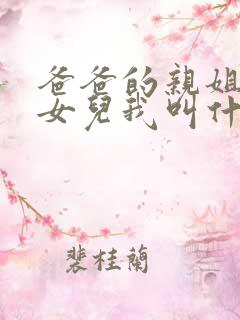 爸爸的親姐
女兒我叫什
裴桂蘭